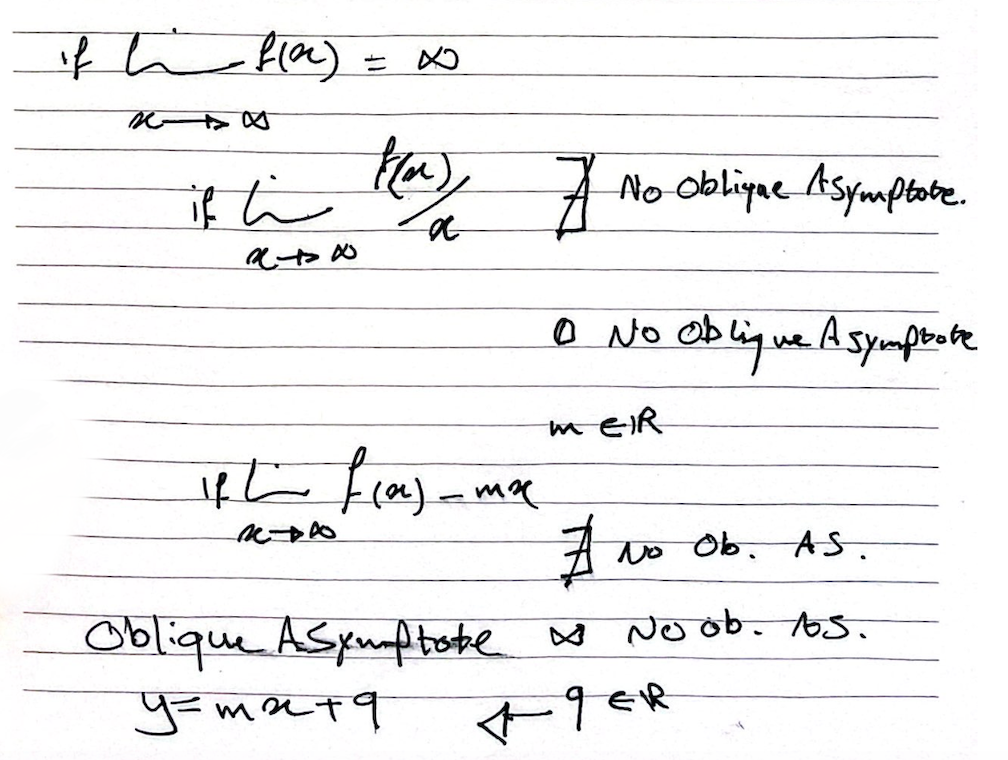 if lim f(x) = ∞
x → ∞
if lim f(x)/x ∄ No Oblique Asymptote.
x → ∞
0 No Oblique Asymptote
m ∈ ℝ
if lim f(x) - mx
x → ∞
∄ No Ob. AS.
Oblique Asymptote ∞ No ob. AS.
y = mx + q ← q ∈ ℝ